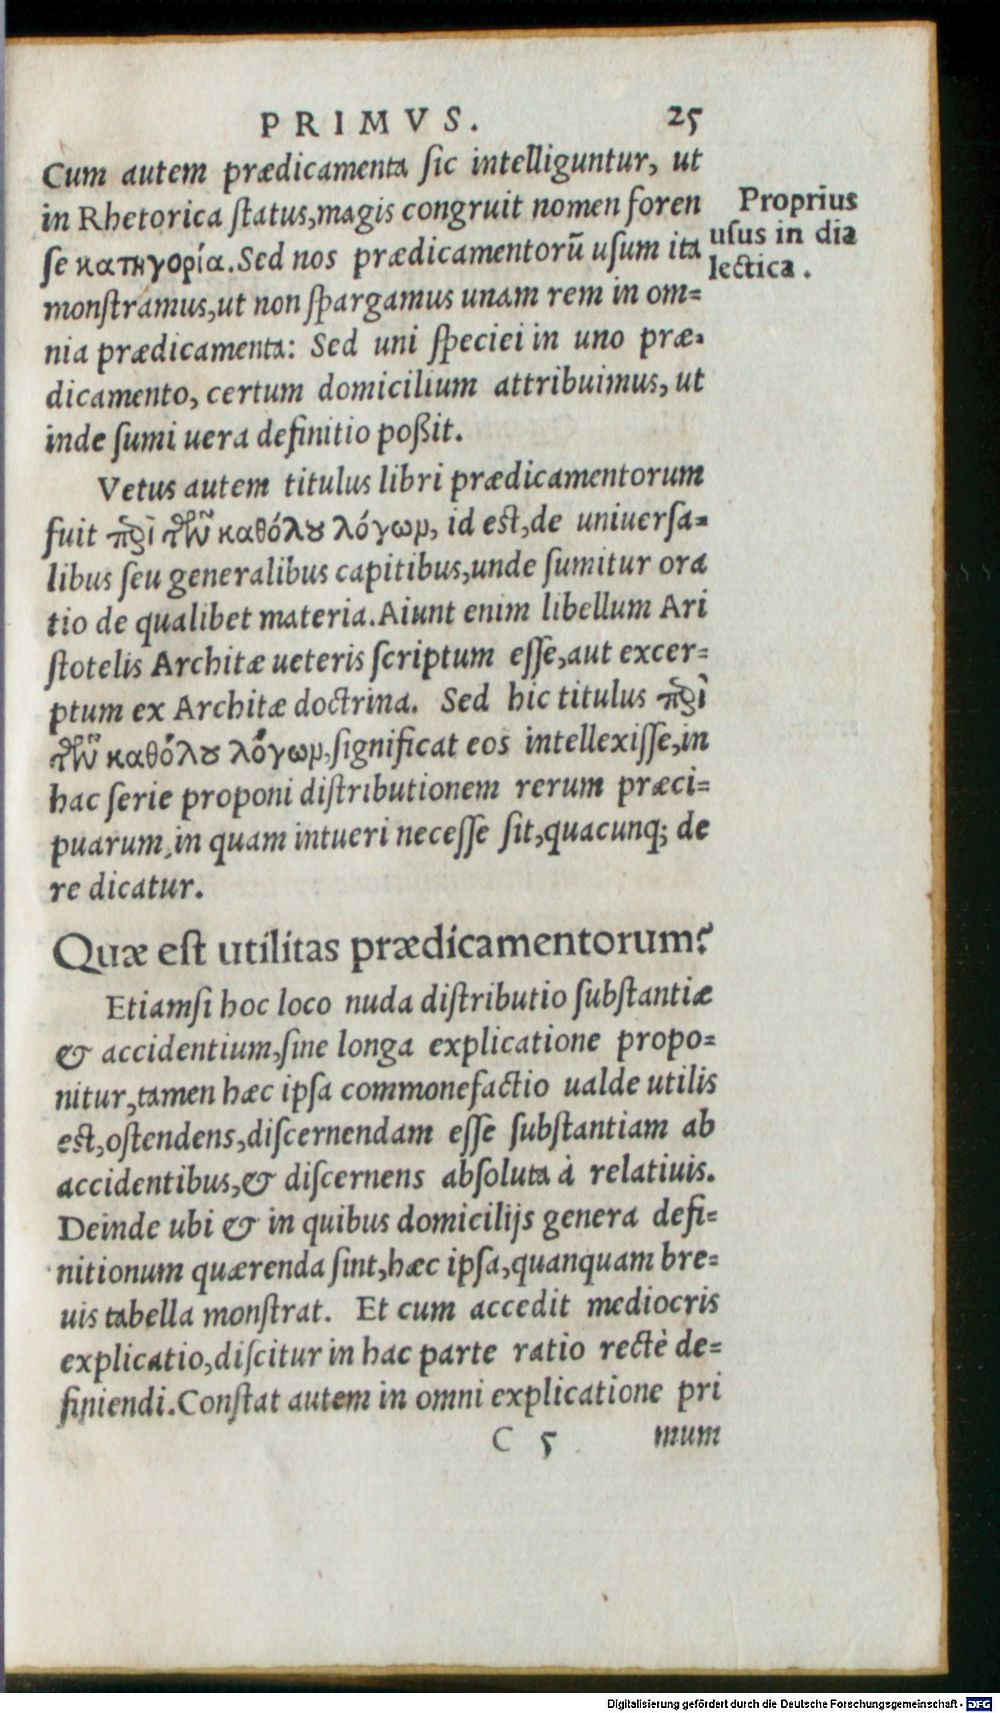 PRIMVS. 25
Cum autem prædicamenta sic intelliguntur, ut
in Rhetorica status,magis congruit nomen foren
se κατηγορία.Sed nos prædicamentorũ usum ita
Proprius
usus in dia
lectica.
monstramus,ut non spargamus unam rem in om=
nia prædicamenta: Sed uni speciei in uno præ=
dicamento, certum domicilium attribuimus, ut
inde sumi uera definitio poßit.
Vetus autem titulus libri prædicamentorum
fuit πὲρὶ τῶν καθόλου λόγων, id est,de uniuersa=
libus seu generalibus capitibus,unde sumitur ora
tio de qualibet materia.Aiunt enim libellum Ari
stotelis Architæ ueteris scriptum esse,aut excer=
ptum ex Architæ doctrina. Sed hic titulus περὶ
τῶν καθόλου λόγων,significat eos intellexisse,in
hac serie proponi distributionem rerum præci=
puarum,in quam intueri necesse sit,quacunq; de
re dicatur.
Quæ est utilitas prædicamentorum?
Etiamsi hoc loco nuda distributio substantiæ
& accidentium,sine longa explicatione propo=
nitur,tamen hæc ipsa commonefactio ualde utilis
est,ostendens,discernendam esse substantiam ab
accidentibus,& discernens absoluta à relatiuis.
Deinde ubi & in quibus domicilijs genera defi=
nitionum quærenda sint,hæc ipsa,quanquam bre=
uis tabella monstrat. Et cum accedit mediocris
explicatio,discitur in hac parte ratio rectè de=
finiendi.Constat autem in omni explicatione pri
C 5 mum
Digitalisierung gefördert durch die Deutsche Forschungsgemeinschaft - DFG